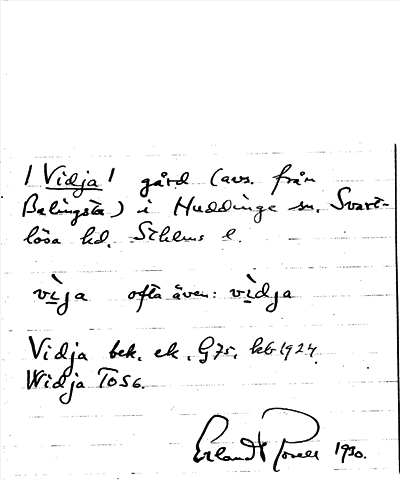 / Vidja / gård (avs. från
Balingsta) i Huddinge sn. Svart-
lösa hd. Sthlms l.
vìja ofta även: vìdja
Vidja bek. ek. G75. kb 1924.
Widja TOS6.
Erland 1930.